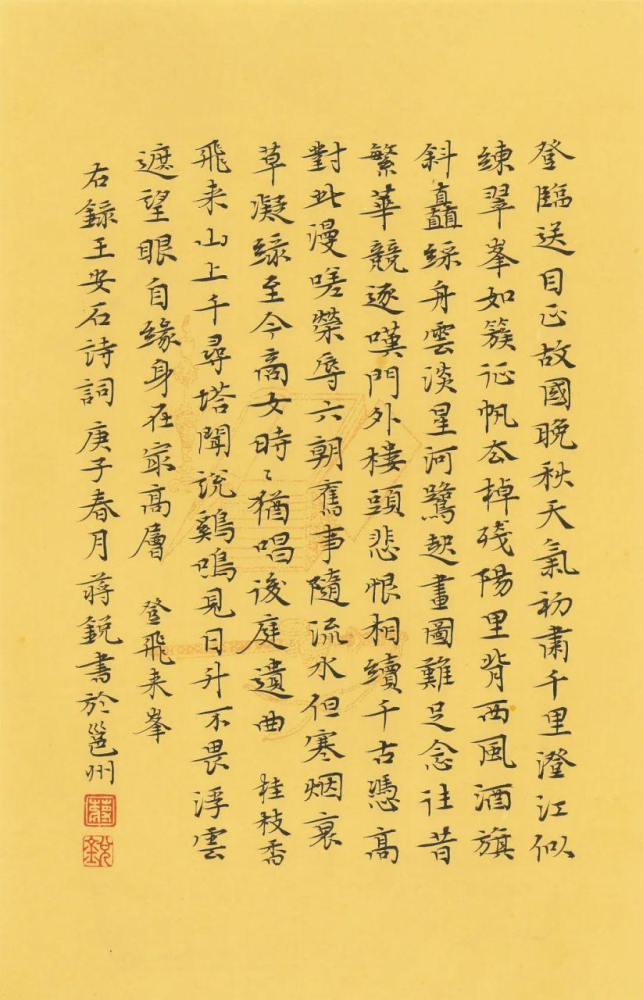 登臨送目正故國晚秋天氣初肅千里澄江似
練翠峯如簇征帆去棹殘陽里背西風酒旗
斜矗綵舟雲淡星河鷺起畫圖難足念往昔
繁華競逐嘆門外樓頭悲恨相續千古憑高
對此漫嗟榮辱六朝舊事隨流水但寒烟衰
草凝綠至今商女時〻猶唱後庭遺曲 桂枝香
飛来山上千尋塔聞説鷄鳴見日升不畏浮雲
遮望眼自緣身在最高層 登飛来峯
右録王安石詩詞庚子春月蔣鋭書於邕州
蔣
鋭